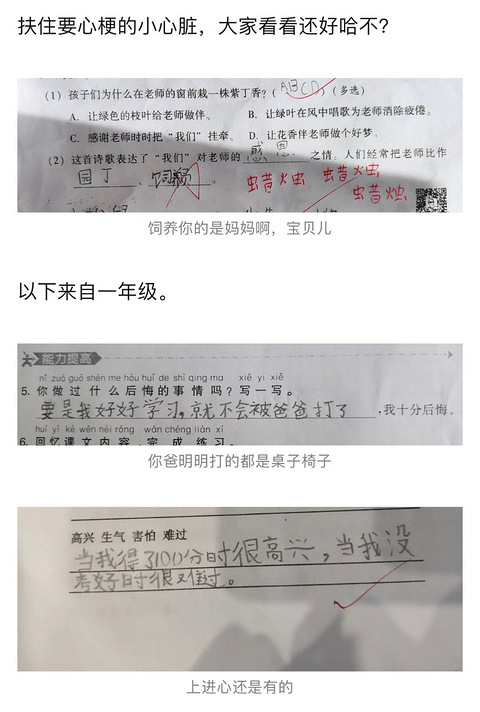 扶住要心梗的小心脏，大家看看还好哈不？
(1) 孩子们为什么在老师的窗前栽一株紫丁香？( ABCD )(多选)
A. 让绿色的枝叶给老师做伴。 B. 让绿叶在风中唱歌为老师消除疲倦。
C. 感谢老师时时把“我们”挂牵。 D. 让花香伴老师做个好梦。
(2) 这首诗歌表达了“我们”对老师的 感恩 之情。人们经常把老师比作
园丁 、 饲养 。
饲养你的是妈妈啊，宝贝儿
以下来自一年级。
能力提高
nǐ zuò guò shén me hòu huǐ de shì qing ma xiě yi xiě
5. 你做过什么后悔的事情吗？写一写。
要是我好好学习，就不会被爸爸打了 ，我十分后悔。
huí yì kè wén nèi róng wán chéng liàn xí
6. 回忆课文内容，完成练习。
你爸明明打的都是桌子椅子
高兴 生气 害怕 难过
当我得了100分时很高兴，当我没
考好时很难过。
上进心还是有的